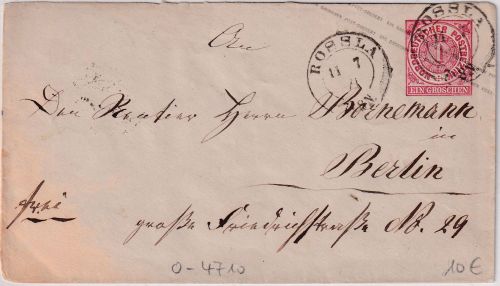 An
ROSSLA
11 7
71
ROSSLA
NORDDEUTSCHER POSTBEZIRK
1
EIN GROSCHEN
Den Rentier Herrn Bornemann
in
Berlin
frei
große Friedrichstraße No. 29
0-4710
10€